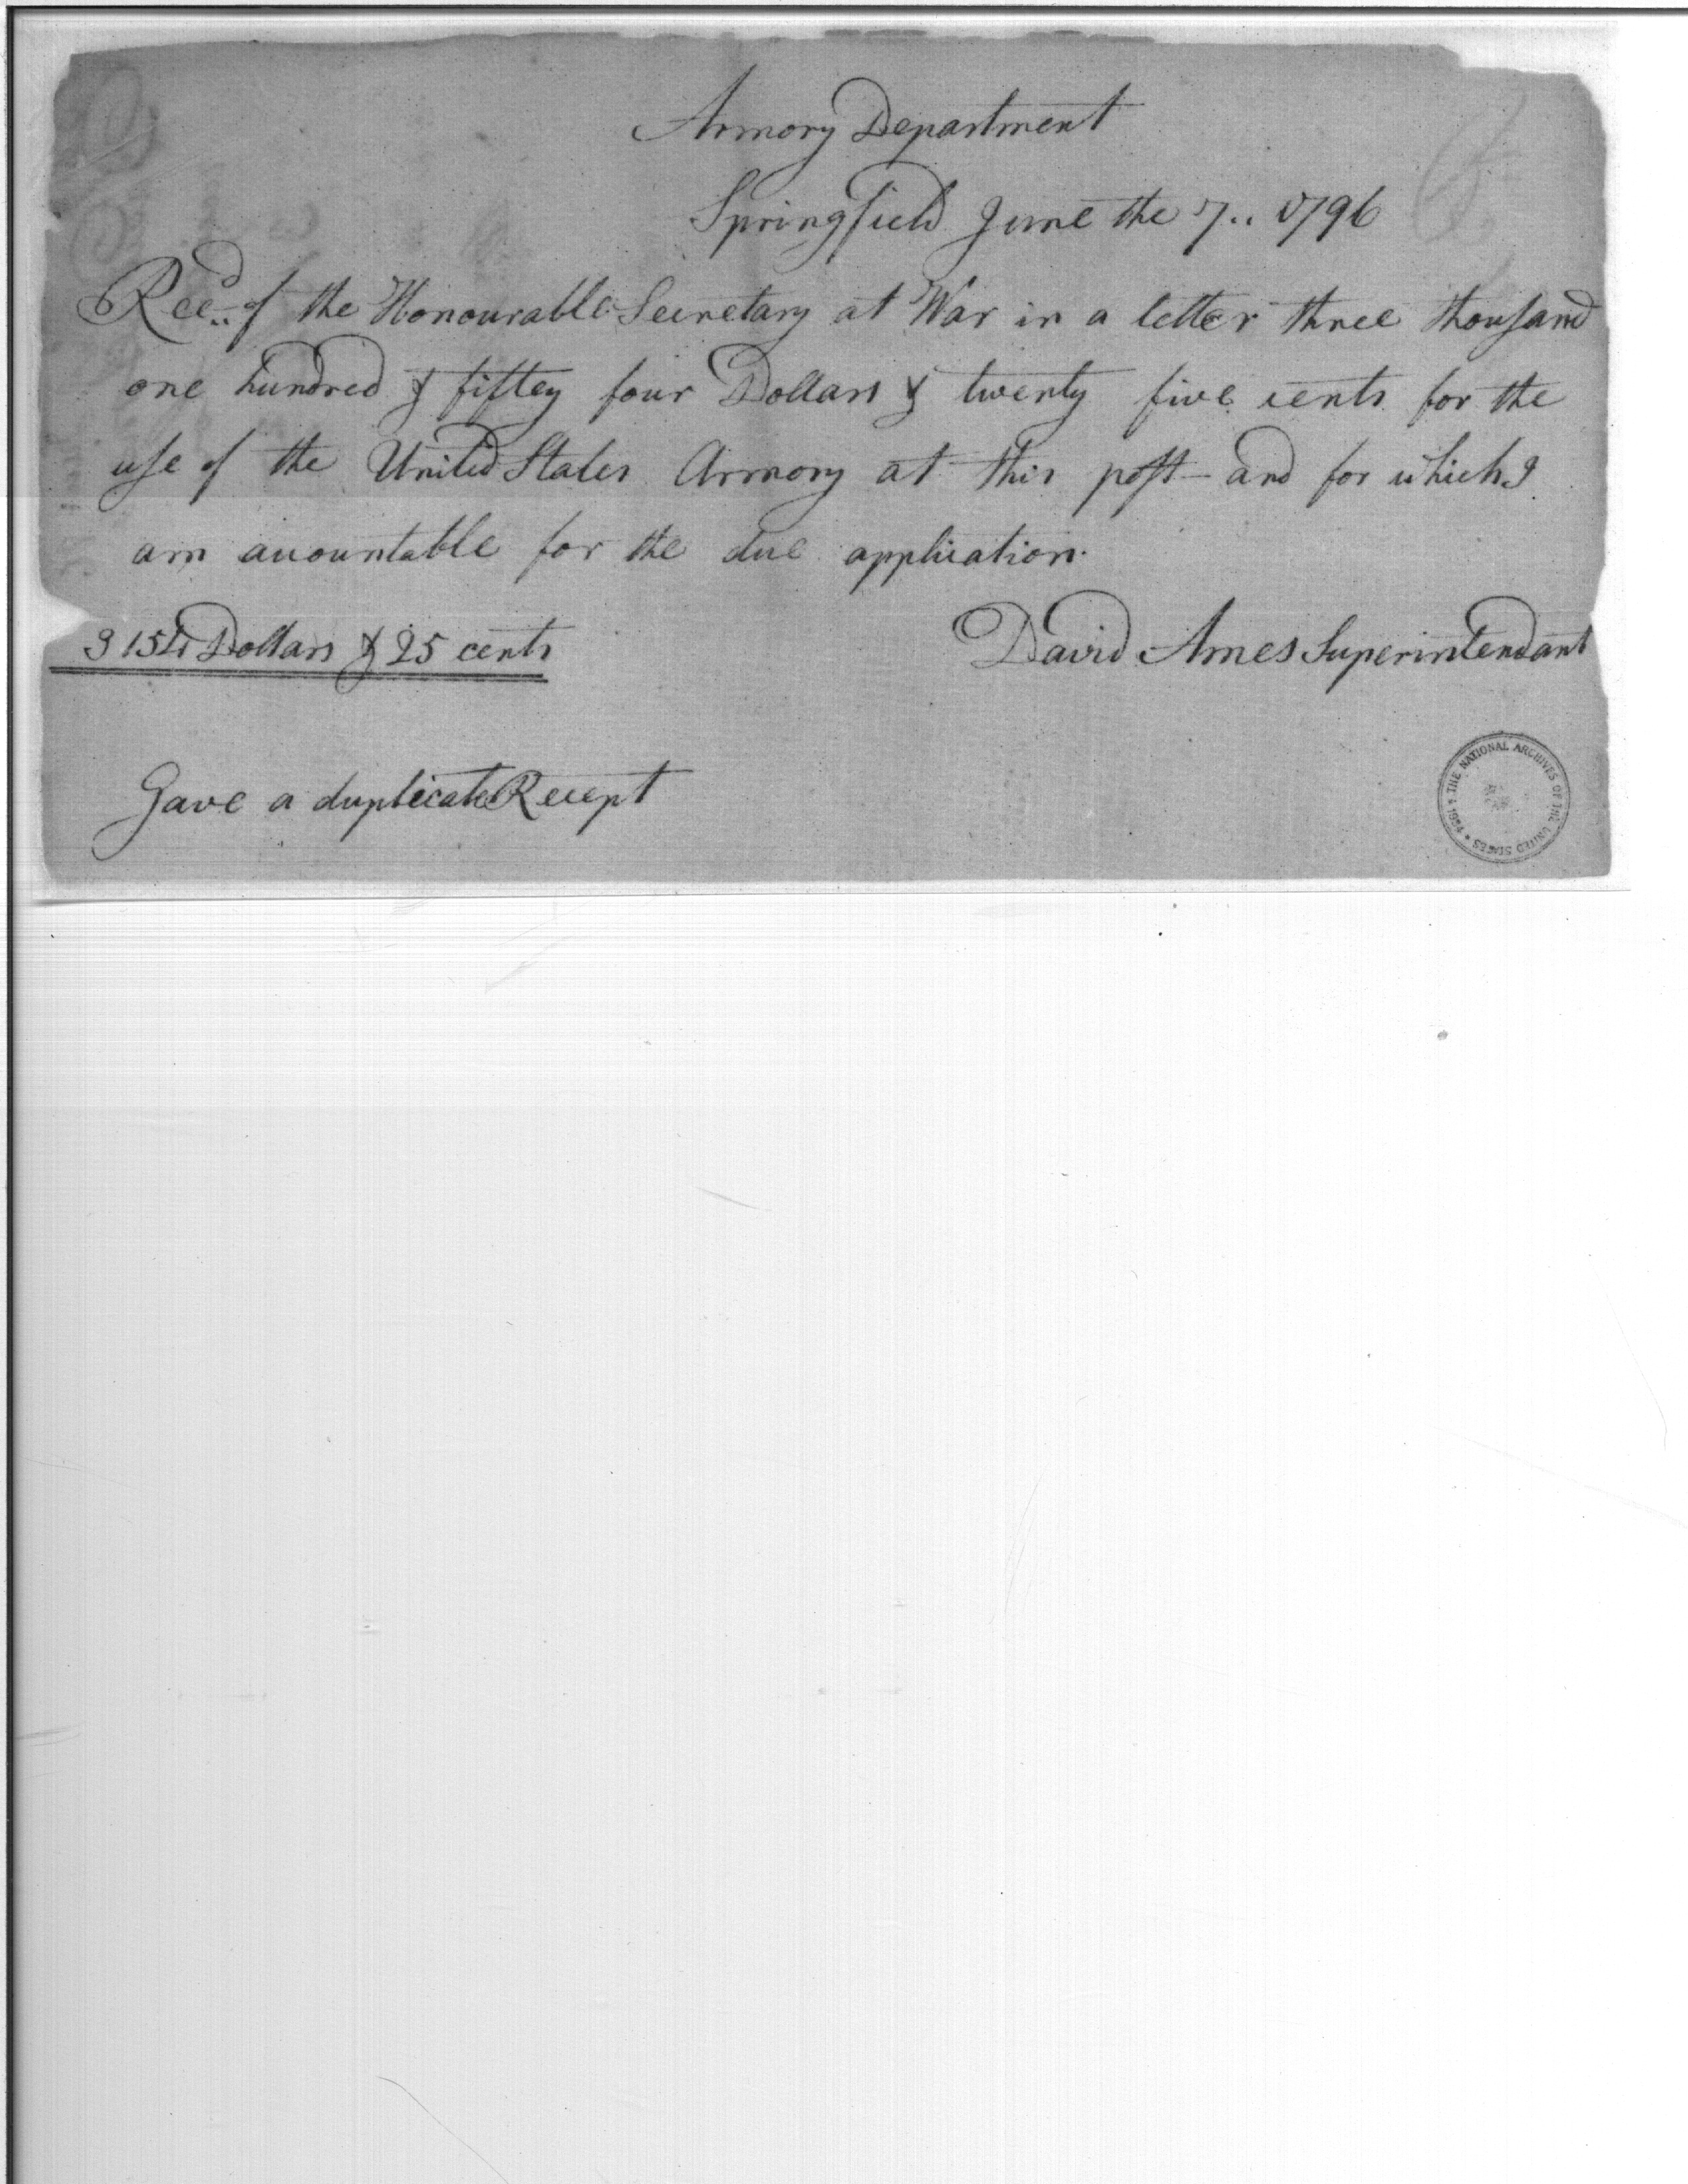 Armory Department
Springfield June the 7.. 1796
Rec.d of the Honourable Secretary at War in a letter three thousand
one hundred & fiftey four Dollars & twenty five cents for the
use of the United States Armory at this post – and for which I
am acountable for the due application.
3154 Dollars & 25 cents
David Ames Superintendant
Gave a duplicate Recept
THE NATIONAL ARCHIVES OF THE UNITED STATES ★ 1934 ★